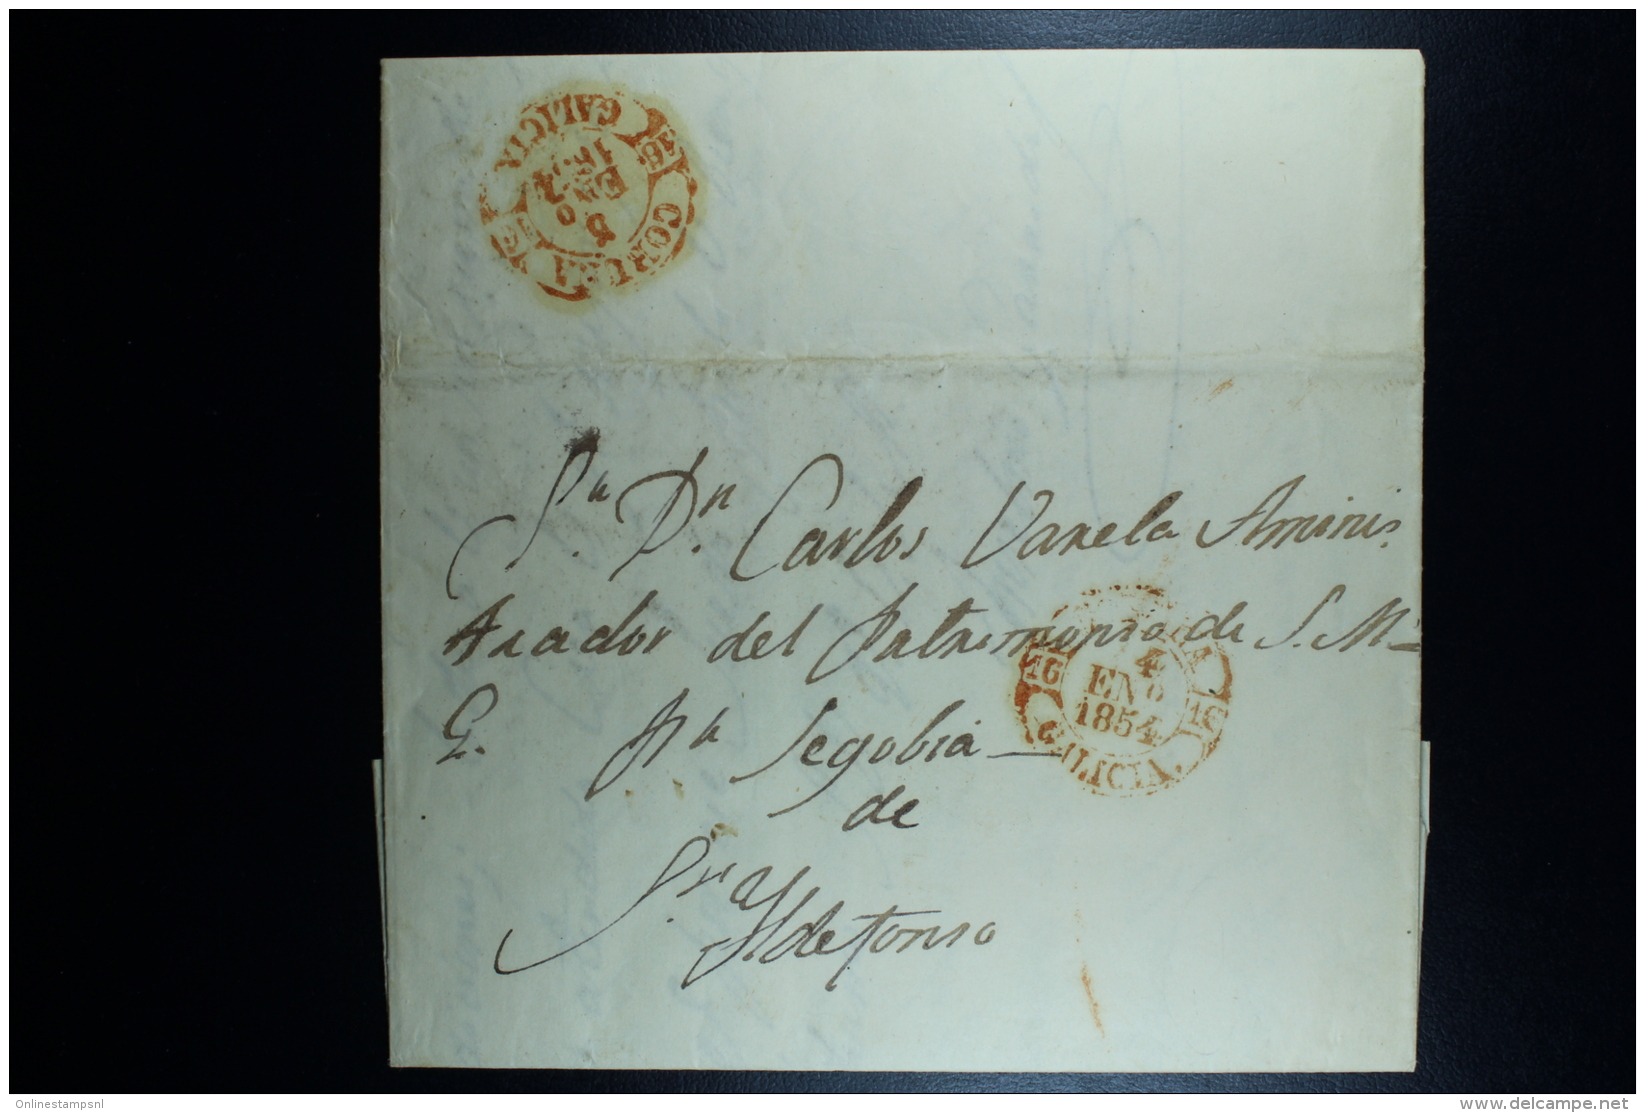 CORUÑA
16
16
5
ENO
GALICIA
Sr. Dn. Carlos Varela Aminis
trador del Patrimonio de S. M=
G. Pa Segobia
de
Sn. Yldefonso
4
ENO
1854
16
16
GALICIA.
Onlinestampsnl
www.delcampe.net